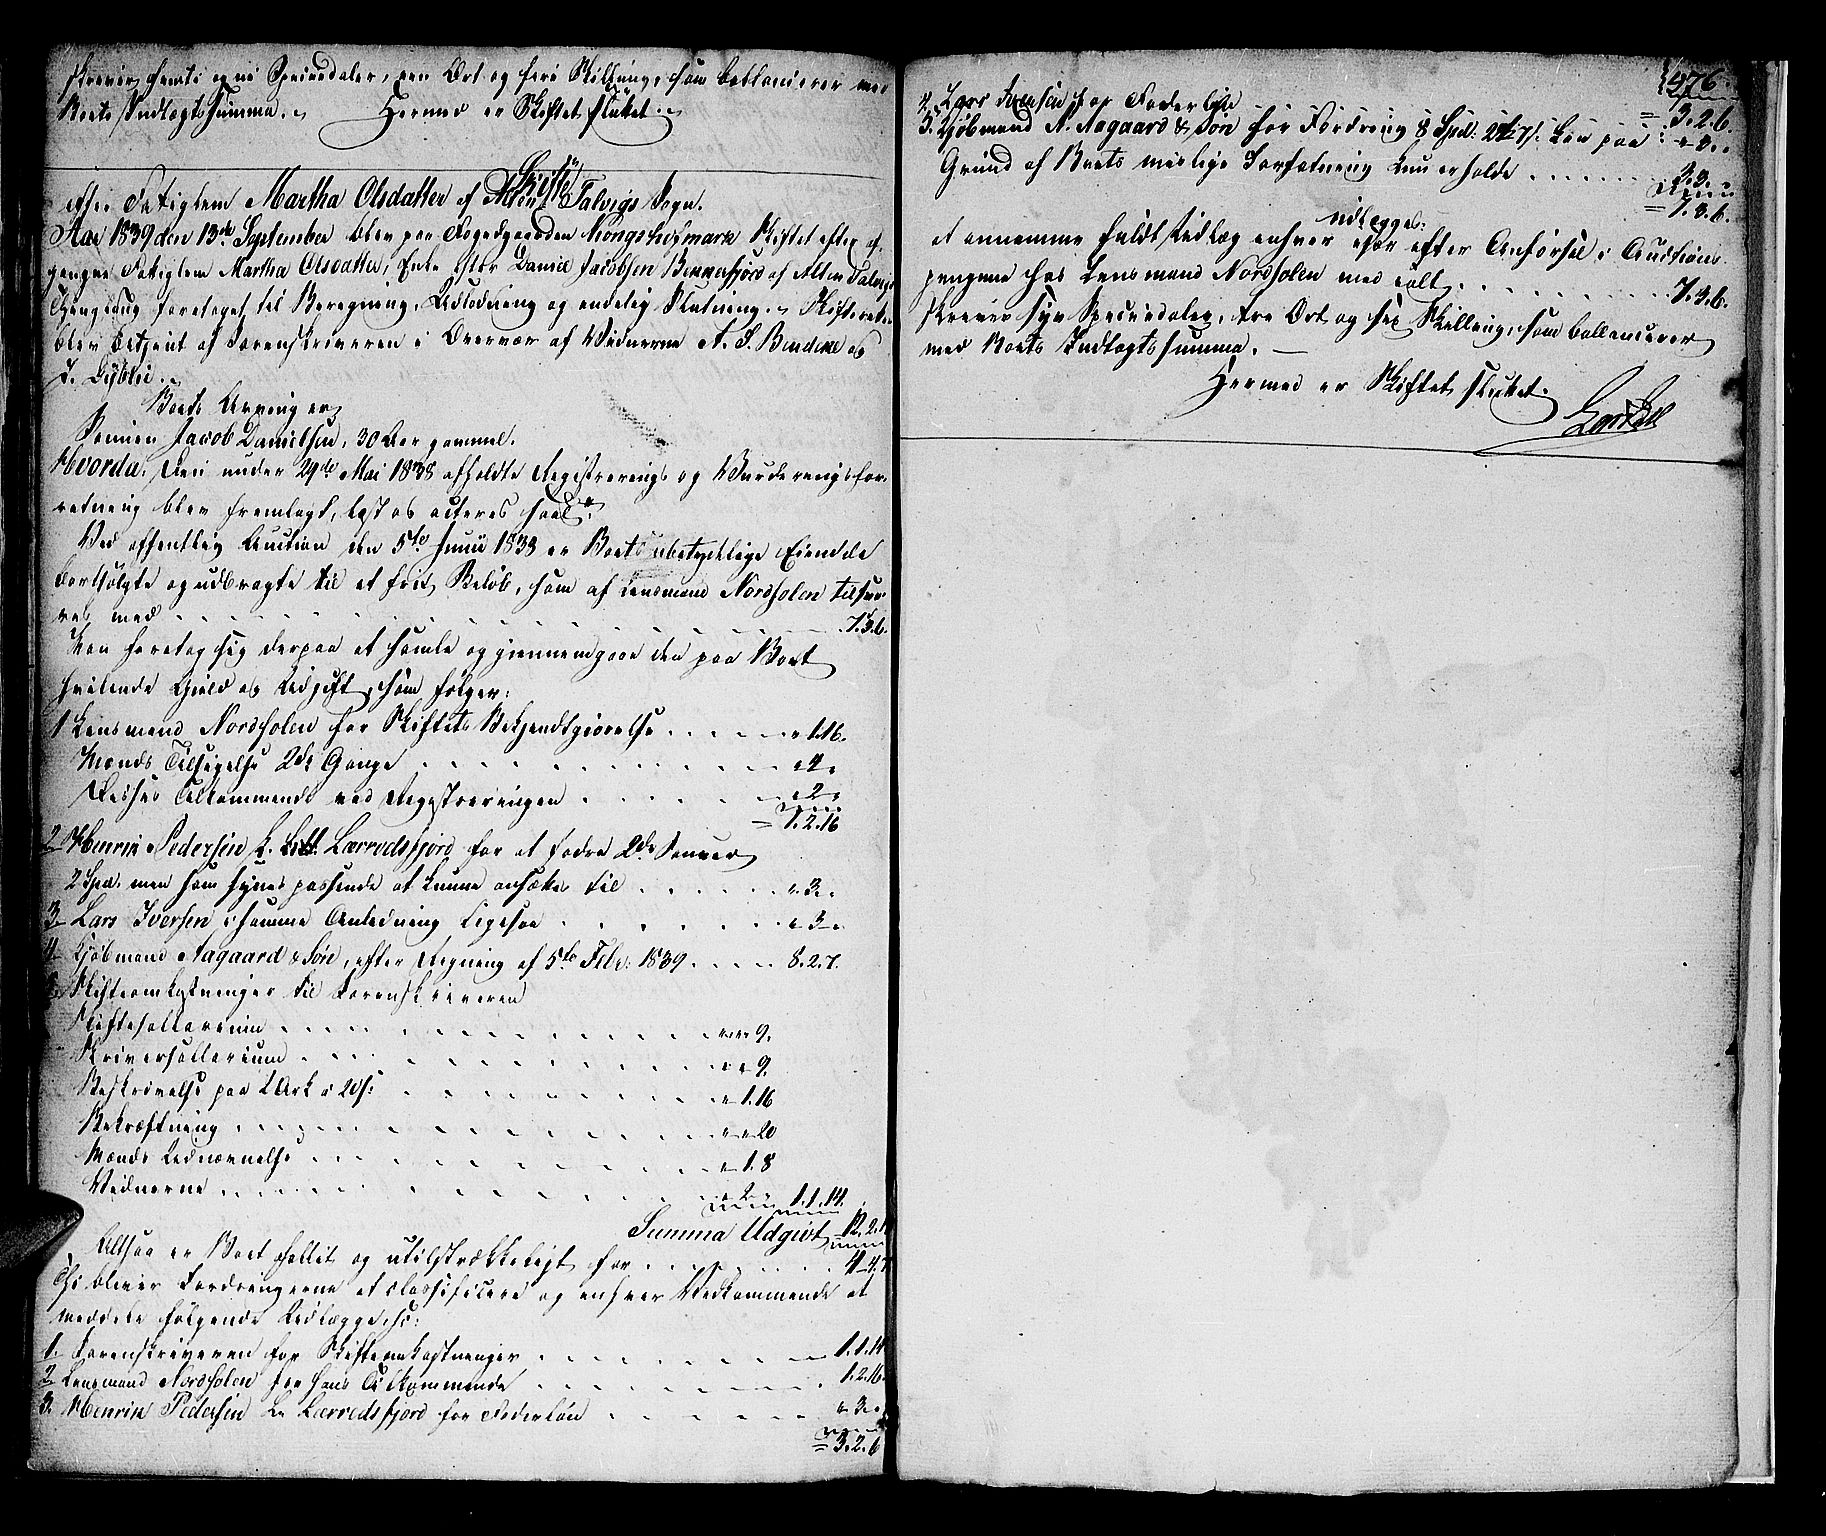 skrever femti og ni Speciedaler, een Ort og fire Skilling, som ballancerer med
Boets Indtægtssumma. Hermed er Skiftet sluttet.
Skifte
efter Fattiglem Martha Olsdatter af Alten Talvigs Sogn.
Aar 1839 den 13de September blev paa Fogedgaarden Kongshofmark Skiftet efter af-
gangne Fattiglem Martha Olsdatter, Enke efter Daniel Jacobsen af Alten Talvigs
Thinglaug foretaget til Beregning, Udlodning og endelig Slutning. Skifteretten
blev betjent af Sorenskriveren i Overvær af Vidnerne A. S. og
J. Lydvi.
Boets Arving er
Sønnen Jacob Danielsen, 30 Aar gammel.
Hvorda, Den under 29de Mai 1838 afholdte Registrerings og Vurderingsfor-
retning blev fremlagt, læst og acteres saal:
Ved offentlig Auction den 5te Junii 1838 er Boets ubetydelige Eiendele
bortsolgte og udbragte til et frit Beløb, som af Lensmand Nordholen tilsva-
res med . . . 7.3.6.
Man foretog sig derpaa at samle og gjennemgaae den paa Boet
hvilende Gield og Udgift, som følger:
1 Lensmand Nordholen for Skiftets Bekjendtgjørelse . . . " 1.16.
Mænds Tilsigelse 2de Gange . . . " 4 "
Disses Tilkommende ved Registreringen . . . " 2 "
= 1.2.16
2 Henrik Pedersen L. Lerredsfjord for at fodre 2de Sauer
2 Spd. men som synes passende at kunne ansættes til . . . " 3. "
3 Lars Iversen i samme Anledning ligesaa . . . " 3 "
4 Kjøbmand Aagaard & Søn, efter Regning af 5te Febr: 1839 . . . 8.2.7.
5 Skifteomkostninger til Sorenskriveren
Skiftesallarium . . . " " 9.
Skriversallarium . . . " " 9.
Beskrivelse paa 2 Ark a 20 s: . . . " 1.16
Bekræftning . . . " " 20
Mænds Udnævnelse . . . " 1.8
Vidnerne . . . " 2 " 1.1.14.
Summa Udgivt 12.2.
Altsaa er Boet fallit og utilstrækkeligt for . . . 4.4.7
Thi bliver Fordringerne at classificere og enhver Vedkommende at
meddele følgende Udlæggelse:
1. Sorenskriveren for Skifteomkostninger . . . 1.1.14
2 Lensmand Nordholen for hans Tilkommende . . . 1.2.16.
3. Henrik Pedersen L. Lerredsfjord for Foderløn . . . " 3. "
= 3.2.6
476.
= 3.2.6.
4. Lars Iversen for Foderløn . . . " 3. "
5. Kjøbmand N. Aagaard & Søn for Fordring 8 Spd: 2 Ort 7 s: kan paa
Grund af Boets mislige Forfatning kun erholde . . . 3.3. "
= 7.3.6.
udlægges:
at annamme fuldt Udlæg enhver især efter Anførsel i Auctions-
pengene hos Lensmand Nordholen med ialt . . . 7.3.6.
skriver syv Speciedaler, tre Ort og sex Skilling, som ballancerer
med Boets Indtægtssumma.
Hermed er Skiftet sluttet.